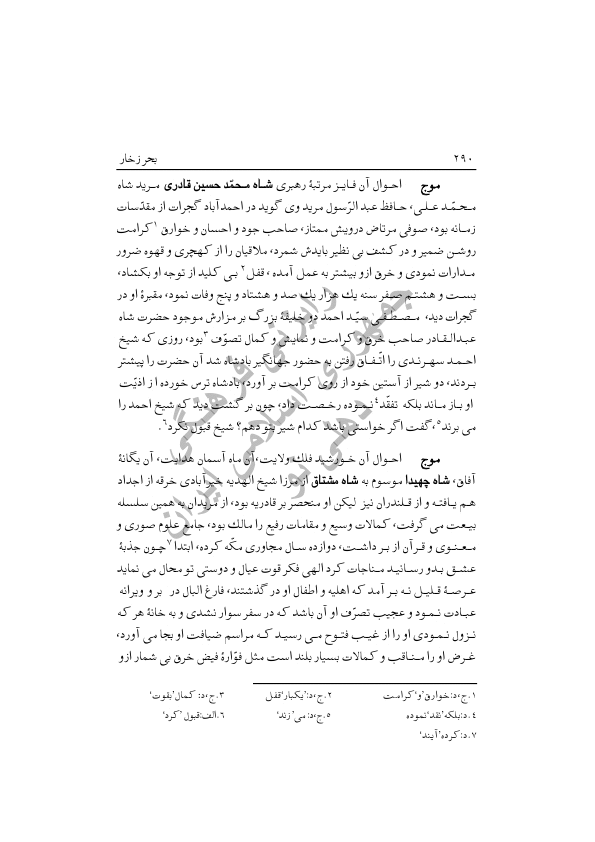 ۲۹۰ بحر زخار
موج احوال آن فایز مرتبهٔ رهبری شاه محمّد حسین قادری مرید شاه
محمّد علی، حافظ عبد الرّسول مرید وی گوید در احمدآباد گجرات از مقدّسات
زمانه بود، صوفی مرتاض درویش ممتاز، صاحب جود و احسان و خوارق۱ کرامت
روشن ضمیر و در کشف بی نظیر بایدش شمرد، ملاقیان را از کهچری و قهوه ضرور
مدارات نمودی و خرق ازو بیشتر به عمل آمده، قفل۲ بی کلید از توجه او بکشاد،
بست و هشتم صفر سنه یك هزار یك صد و هشتاد و پنج وفات نمود، مقبرهٔ او در
گجرات دید، مصطفی سیّد احمد دو خلیفهٔ بزرگ بر مزارش موجود حضرت شاه
عبدالقادر صاحب خرق و کرامت و نمایش و کمال تصوّف۳ بود، روزی که شیخ
احمد سهرندی را اتّفاق رفتن به حضور جهانگیر بادشاه شد آن حضرت را پیشتر
بردند، دو شیر از آستین خود از روی کرامت بر آورد، بادشاه ترس خورده از اذیّت
او باز ماند بلکه تفقّد۴ نموده رخصت داد، چون بر گشت دید که شیخ احمد را
می برند۵، گفت اگر خواستی باشد کدام شیر بتو دهم؟ شیخ قبول نکرد۶.
موج احوال آن خورشید فلك ولایت، آن ماه آسمان هدایت، آن یگانهٔ
آفاق، شاه چهیدا موسوم به شاه مشتاق از مرزا شیخ الهدیه خیرآبادی خرقه از اجداد
هم یافته و از قلندران نیز لیکن او منحصر بر قادریه بود، از مریدان به همین سلسله
بیعت می گرفت، کمالات وسیع و مقامات رفیع را مالك بود، جامع علوم صوری و
معنوی و قرآن از بر داشت، دوازده سال مجاوری مکّه کرده، ابتدا۷ چون جذبهٔ
عشق بدو رسانید مناجات کرد الهی فکر قوت عیال و دوستی تو محال می نماید
عرصهٔ قلیل نه بر آمد که اهلیه و اطفال او در گذشتند، فارغ البال در بر و ویرانه
عبادت نمود و عجیب تصرّف او آن باشد که در سفر سوار نشدی و به خانهٔ هر که
نزول نمودی او را از غیب فتوح می رسید که مراسم ضیافت او بجا می آورد،
غرض او را مناقب و کمالات بسیار بلند است مثل فوّارهٔ فیض خرق بی شمار ازو
۱.ج،د:خوارق'و'کراست ۲.ج،د:'یکبار'قفل ۳.ج،د: کمال'بقوت'
۴.د:بلکه'نقد'نموده ۵.ج،د: می'زند' ۶.الف:قبول 'کرد'
۷.د:کرده'آیند'
جمهوری اسلامی ایران